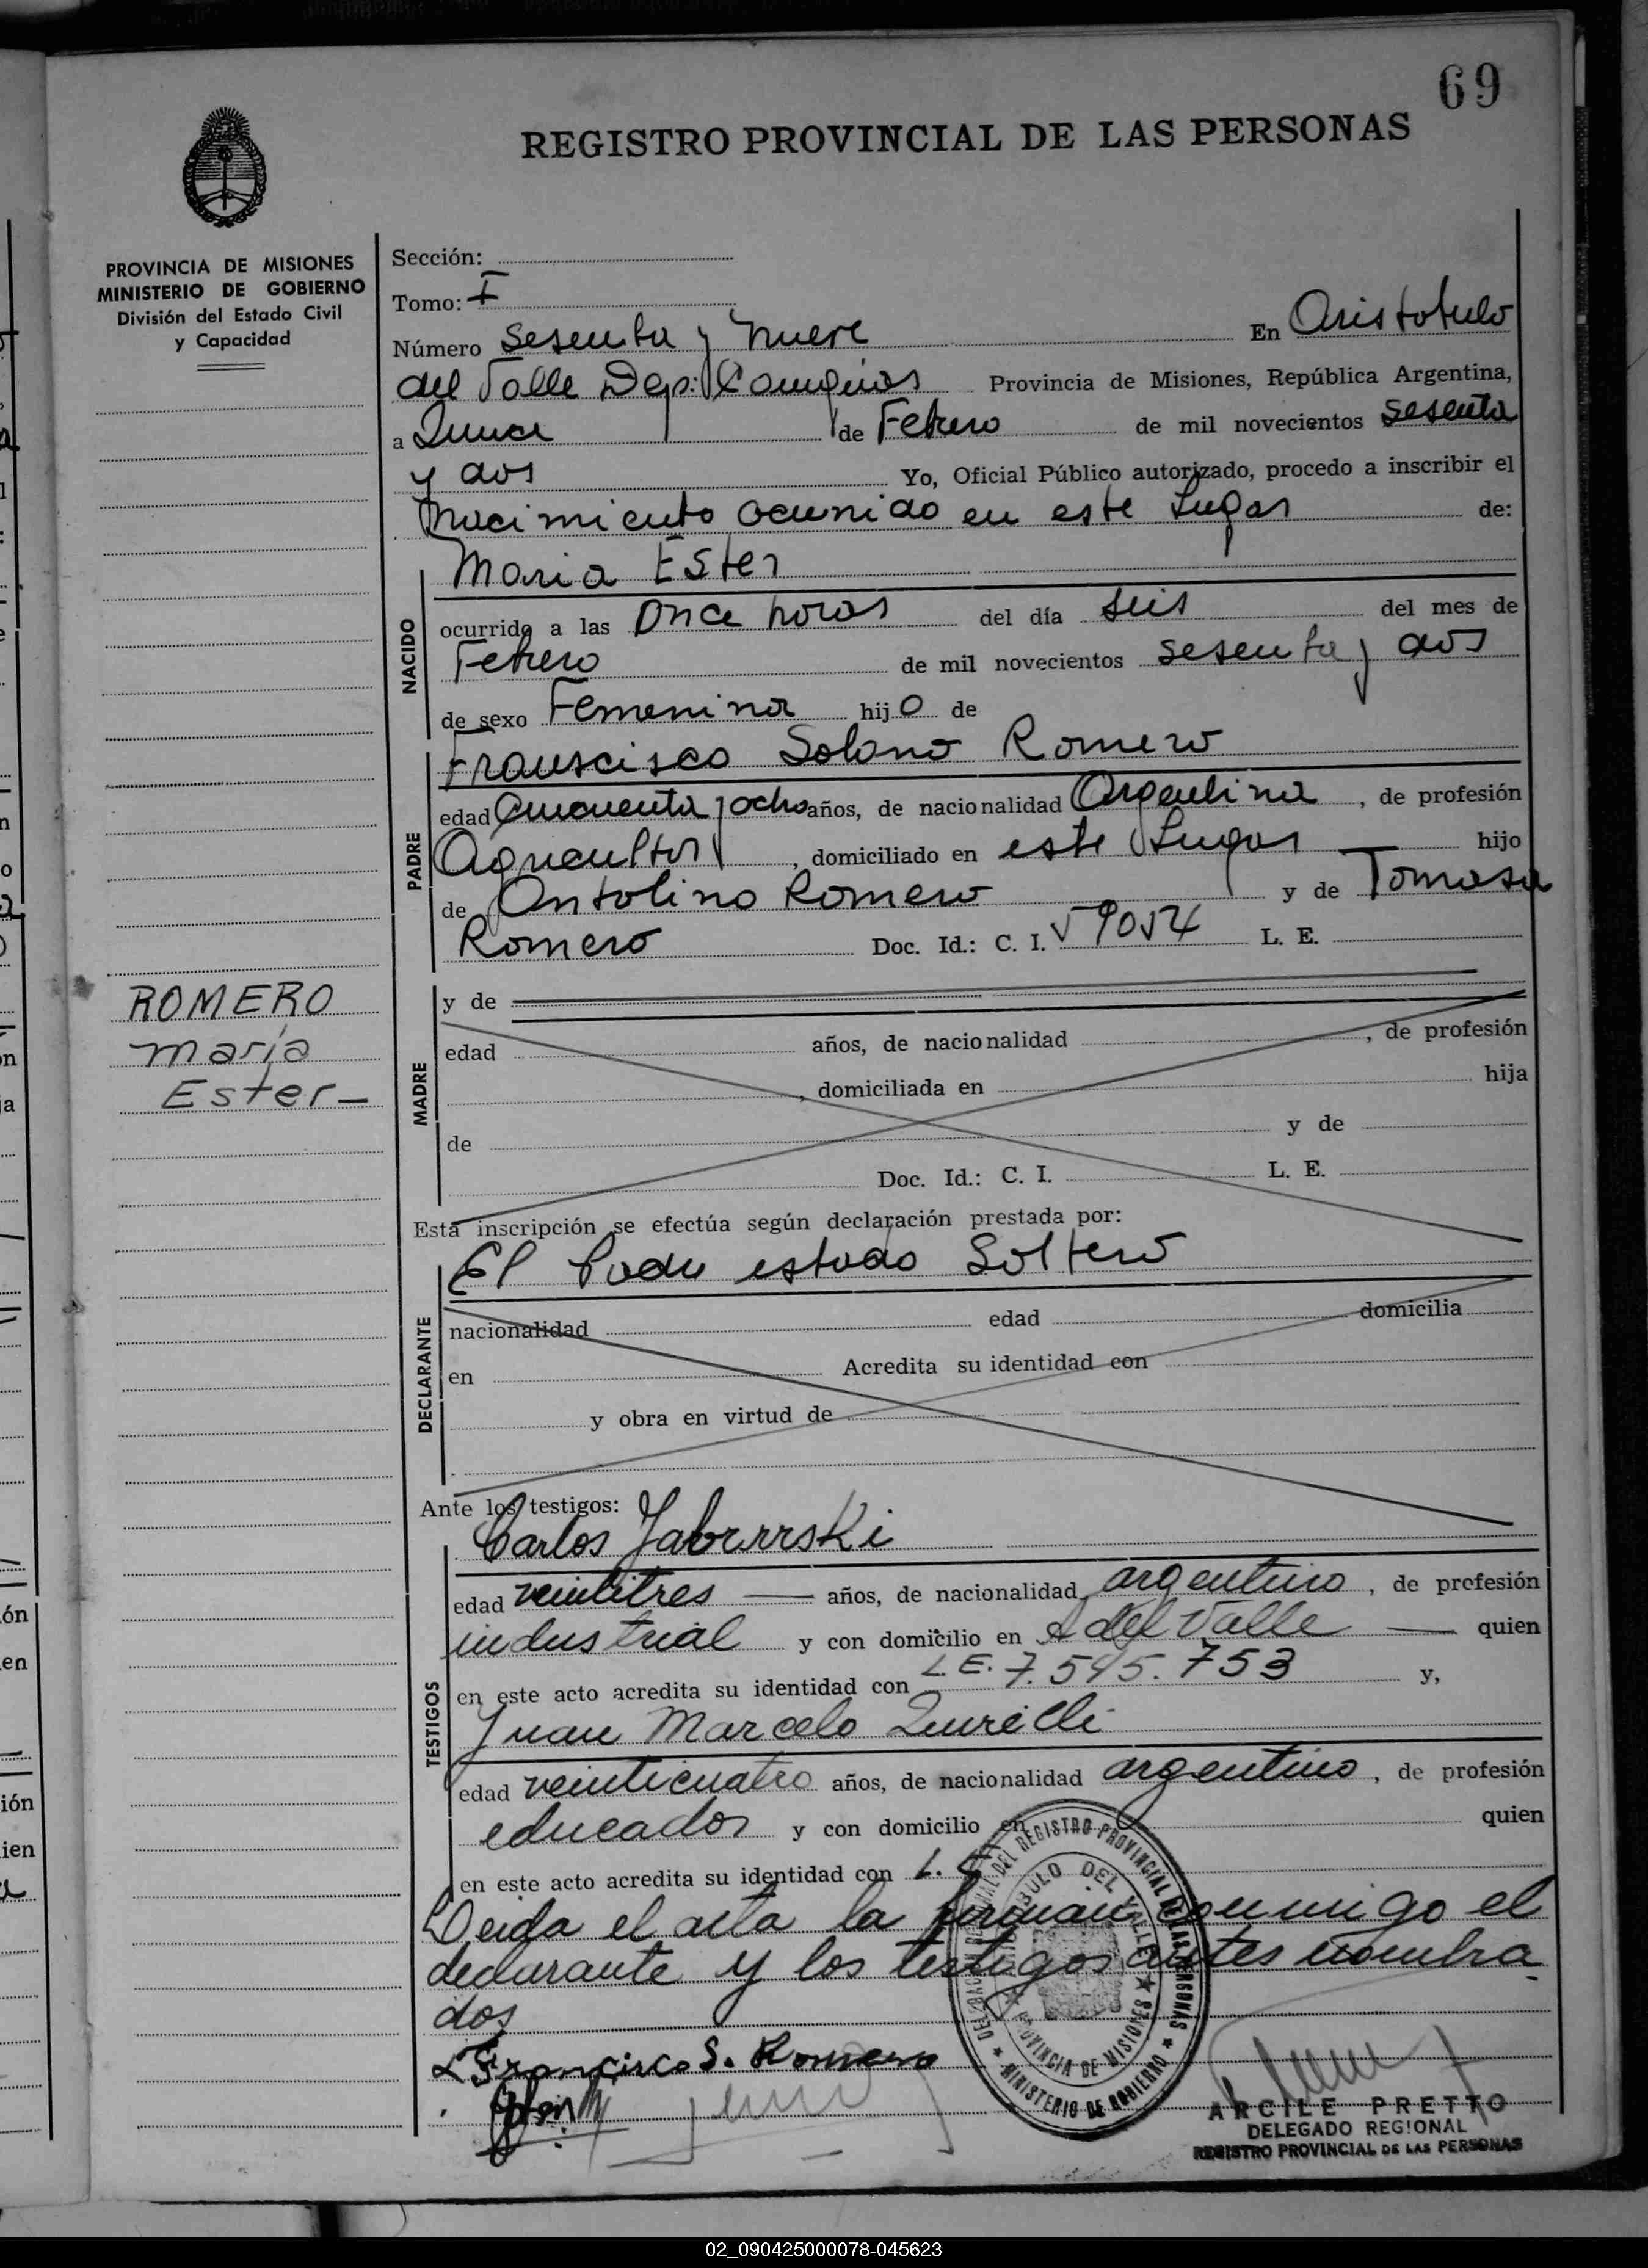 69
REGISTRO PROVINCIAL DE LAS PERSONAS
PROVINCIA DE MISIONES
MINISTERIO DE GOBIERNO
División del Estado Civil
y Capacidad
Sección:
Tomo: I
Número Sesenta y nueve En Aristobulo
del Valle Dep: Cainguas Provincia de Misiones, República Argentina,
a Quince de Febrero de mil novecientos Sesenta
y dos Yo, Oficial Público autorizado, procedo a inscribir el
Nacimiento ocurrido en este Lugar de:
Maria Ester
NACIDO
ocurrido a las Once horas del día seis del mes de
Febrero de mil novecientos sesenta y dos
de sexo Femenina hijo de
Franscisco Solano Romero
PADRE
edad Cincuenta y ocho años, de nacionalidad Argentina, de profesión
Agricultor, domiciliado en este Lugar hijo
de Antolino Romero y de Tomasa
Romero Doc. Id.: C. I. 59054 L. E.
ROMERO
maria
Ester-
MADRE
y de
edad años, de nacionalidad , de profesión
, domiciliada en hija
de y de
Doc. Id.: C. I. L. E.
Esta inscripción se efectúa según declaración prestada por:
El Padre estado Soltero
DECLARANTE
nacionalidad edad domicilia
en Acredita su identidad con
y obra en virtud de
Ante los testigos:
Carlos
TESTIGOS
edad veintitres — años, de nacionalidad argentino, de profesión
industrial y con domicilio en A del Valle — quien
en este acto acredita su identidad con L.E. 7.595.753 y,
Juan Marcelo
edad veinticuatro años, de nacionalidad argentino, de profesión
educador y con domicilio en quien
en este acto acredita su identidad con L. E
Leida el acta la firman conmigo el
declarante y los testigos antes nombra
dos
Francisco S. Romero
DELEGACION REGIONAL DEL REGISTRO PROVINCIAL DE LAS PERSONAS ★ MINISTERIO DE GOBIERNO ★
ARISTOBULO DEL VALLE ★ PROVINCIA DE MISIONES ★
ARCILE PRETTO
DELEGADO REGIONAL
REGISTRO PROVINCIAL DE LAS PERSONAS
02_090425000078-045623